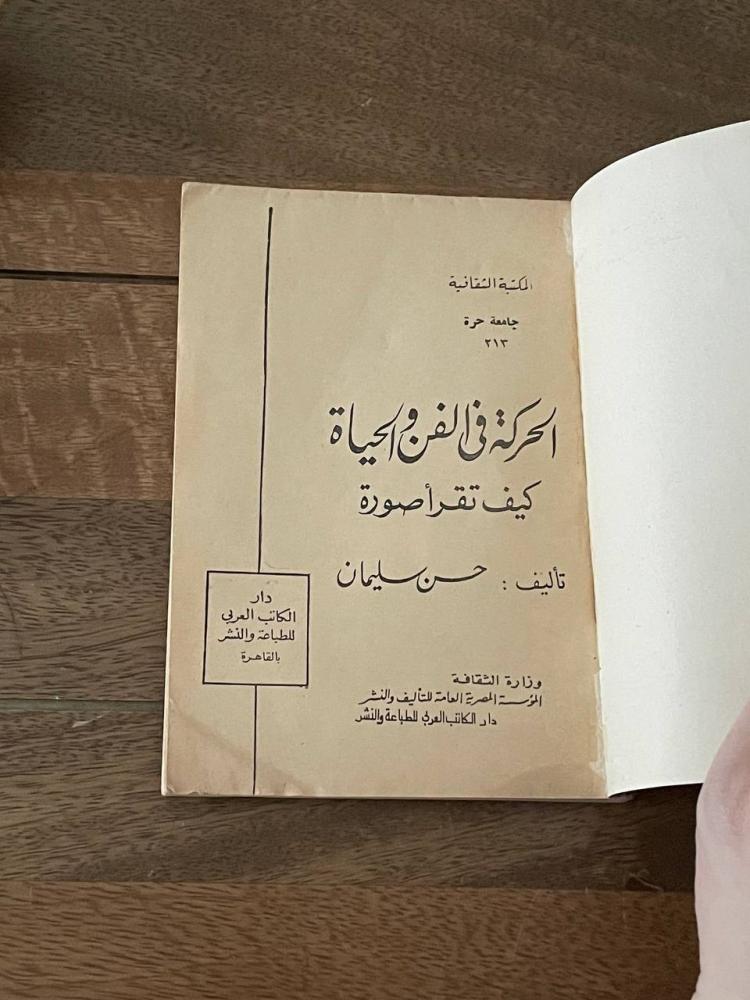 المكتبة الثقافية
جامعة حرة
٢١٣
الحركة فى الفن والحياة
كيف تقرأ صورة
تأليف : حسن سليمان
دار
الكاتب العربى
للطباعة والنشر
بالقاهرة
وزارة الثقافة
المؤسسة المصرية العامة للتأليف والنشر
دار الكاتب العربى للطباعة والنشر